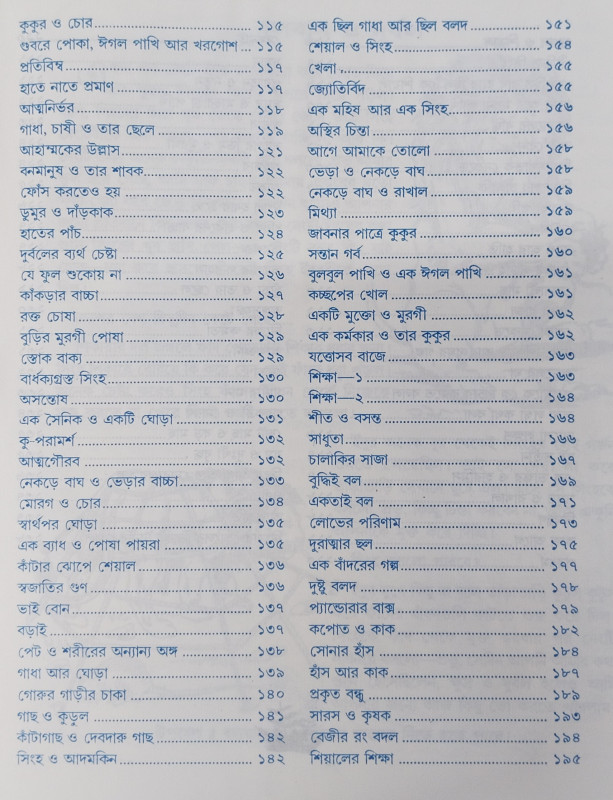 কুকুর ও চোর ... ১১৫
গুবরে পোকা, ঈগল পাখি আর খরগোশ ... ১১৫
প্রতিবিম্ব ... ১১৭
হাতে নাতে প্রমাণ ... ১১৭
আত্মনির্ভর ... ১১৮
গাধা, চাষী ও তার ছেলে ... ১১৯
আহাম্মকের উল্লাস ... ১২১
বনমানুষ ও তার শাবক ... ১২২
ফোঁস করতেও হয় ... ১২২
ডুমুর ও দাঁড়কাক ... ১২৩
হাতের পাঁচ ... ১২৪
দুর্বলের ব্যর্থ চেষ্টা ... ১২৫
যে ফুল শুকোয় না ... ১২৬
কাঁকড়ার বাচ্চা ... ১২৭
রক্ত চোষা ... ১২৮
বুড়ির মুরগী পোষা ... ১২৯
স্তোক বাক্য ... ১২৯
বার্ধক্যগ্রস্ত সিংহ ... ১৩০
অসন্তোষ ... ১৩০
এক সৈনিক ও একটি ঘোড়া ... ১৩১
কু-পরামর্শ ... ১৩২
আত্মগৌরব ... ১৩২
নেকড়ে বাঘ ও ভেড়ার বাচ্চা ... ১৩৩
মোরগ ও চোর ... ১৩৪
স্বার্থপর ঘোড়া ... ১৩৫
এক ব্যাধ ও পোষা পায়রা ... ১৩৫
কাঁটার ঝোপে শেয়াল ... ১৩৬
স্বজাতির গুণ ... ১৩৬
ভাই বোন ... ১৩৭
বড়াই ... ১৩৭
পেট ও শরীরের অন্যান্য অঙ্গ ... ১৩৮
গাধা আর ঘোড়া ... ১৩৯
গোরুর গাড়ীর চাকা ... ১৪০
গাছ ও কুড়ুল ... ১৪১
কাঁটাগাছ ও দেবদারু গাছ ... ১৪২
সিংহ ও আদমকিন ... ১৪২
এক ছিল গাধা আর ছিল বলদ ... ১৫১
শেয়াল ও সিংহ ... ১৫৪
খেলা ... ১৫৫
জ্যোতির্বিদ ... ১৫৫
এক মহিষ আর এক সিংহ ... ১৫৬
অস্থির চিন্তা ... ১৫৬
আগে আমাকে তোলো ... ১৫৮
ভেড়া ও নেকড়ে বাঘ ... ১৫৮
নেকড়ে বাঘ ও রাখাল ... ১৫৯
মিথ্যা ... ১৫৯
জাবনার পাত্রে কুকুর ... ১৬০
সন্তান গর্ব ... ১৬০
বুলবুল পাখি ও এক ঈগল পাখি ... ১৬১
কচ্ছপের খোল ... ১৬১
একটি মুক্তো ও মুরগী ... ১৬২
এক কর্মকার ও তার কুকুর ... ১৬২
যত্তোসব বাজে ... ১৬৩
শিক্ষা—১ ... ১৬৩
শিক্ষা—২ ... ১৬৪
শীত ও বসন্ত ... ১৬৪
সাধুতা ... ১৬৬
চালাকির সাজা ... ১৬৭
বুদ্ধিই বল ... ১৬৯
একতাই বল ... ১৭১
লোভের পরিণাম ... ১৭৩
দুরাত্মার ছল ... ১৭৫
এক বাঁদরের গল্প ... ১৭৭
দুষ্টু বলদ ... ১৭৮
প্যান্ডোরার বাক্স ... ১৭৯
কপোত ও কাক ... ১৮২
সোনার হাঁস ... ১৮৪
হাঁস আর কাক ... ১৮৭
প্রকৃত বন্ধু ... ১৮৯
সারস ও কৃষক ... ১৯৩
বেজীর রং বদল ... ১৯৪
শিয়ালের শিক্ষা ... ১৯৫